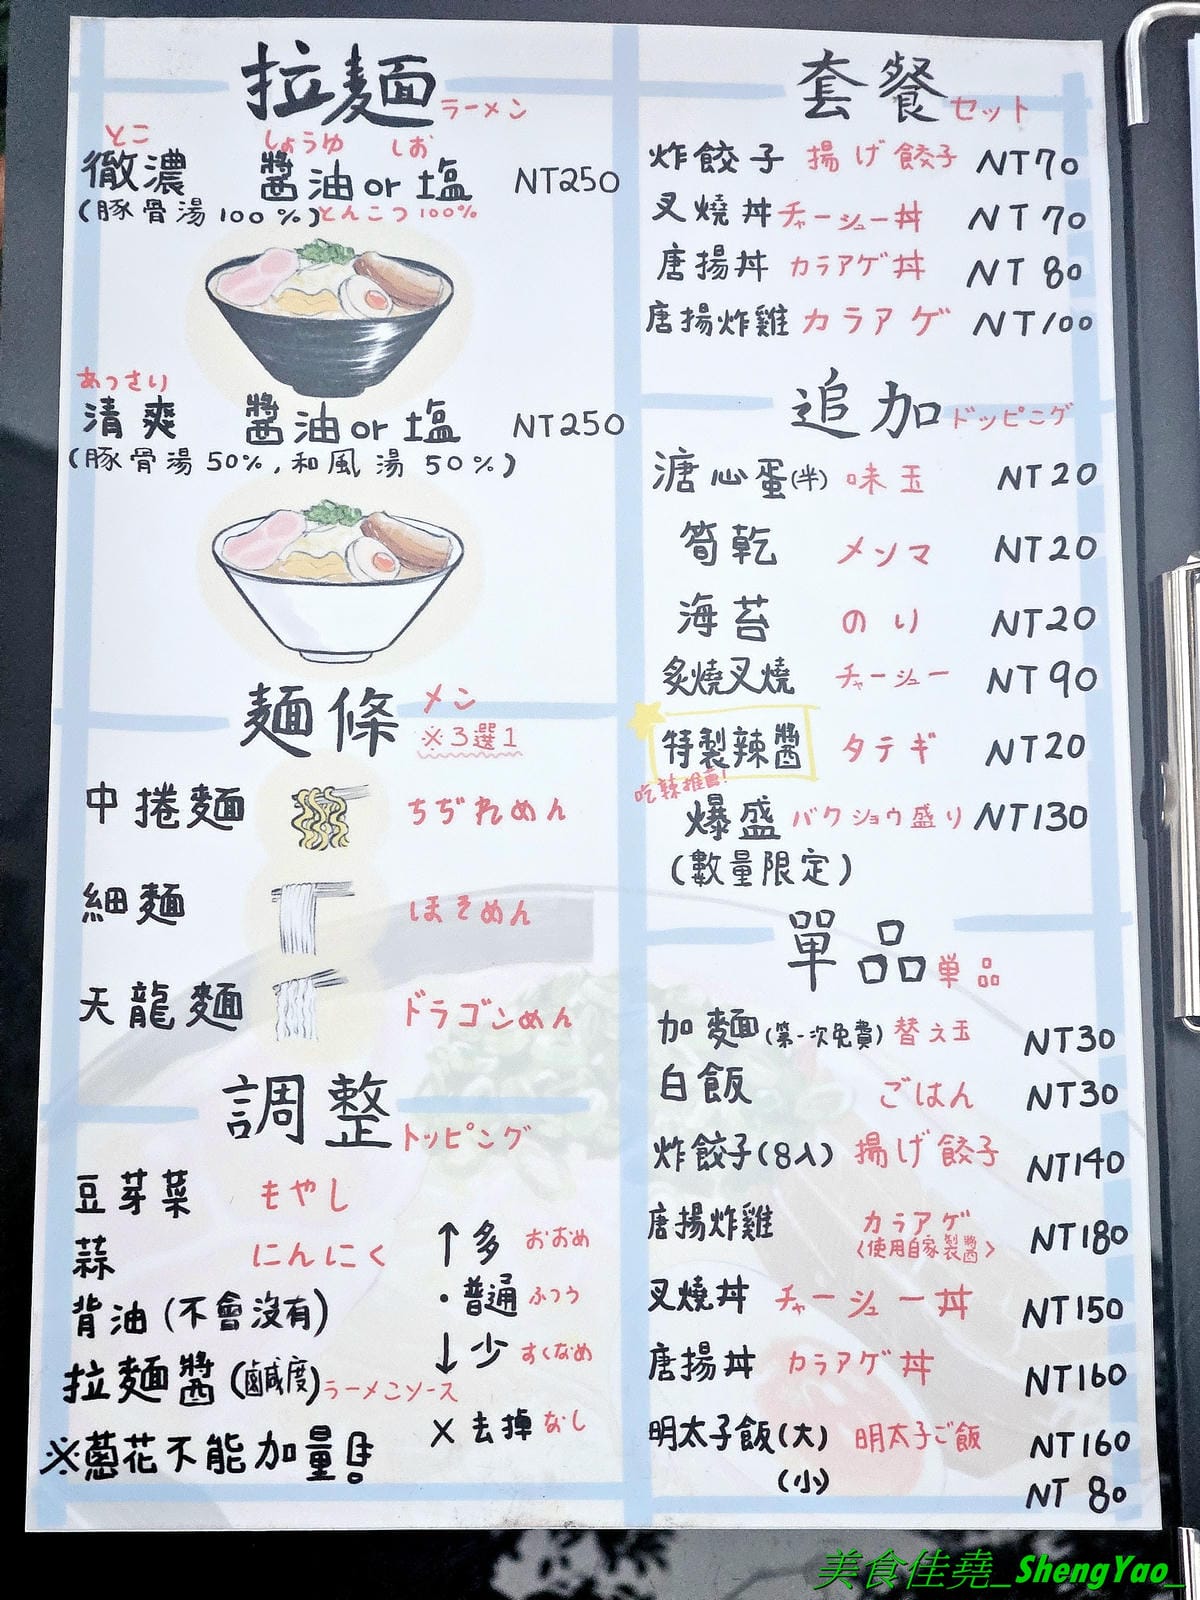 拉麵 ラーメン
とこ しょうゆ しお
徹濃 醬油or塩 NT250
(豚骨湯100%)とんこつ100%
あっさり
清爽 醬油or塩 NT250
(豚骨湯50%,和風湯50%)
麵條 メン
※3選1
中捲麵 ちぢれめん
細麵 ほそめん
天龍麵 ドラゴンめん
調整 トッピング
豆芽菜 もやし
蒜 にんにく
背油(不會沒有)
拉麵醬(鹹度)ラーメンソース
※蔥花不能加量!
↑多 おおめ
·普通 ふつう
↓少 すくなめ
X去掉 なし
套餐 セット
炸餃子 揚げ餃子 NT70
叉燒丼 チャーシュー丼 NT70
唐揚丼 カラアゲ丼 NT80
唐揚炸雞 カラアゲ NT100
追加 ドッピング
溏心蛋(半) 味玉 NT20
筍乾 メンマ NT20
海苔 のり NT20
炙燒叉燒 チャーシュー NT90
特製辣醬 タテギ NT20
吃辣推薦!
爆盛 バクショウ盛り NT130
(數量限定)
單品 単品
加麵(第一次免費) 替え玉 NT30
白飯 ごはん NT30
炸餃子(8入) 揚げ餃子 NT140
唐揚炸雞 カラアゲ NT180
〈使用自家製醬〉
叉燒丼 チャーシュー丼 NT150
唐揚丼 カラアゲ丼 NT160
明太子飯(大) 明太子ご飯 NT160
(小) NT80
美食佳堯_ShengYao_